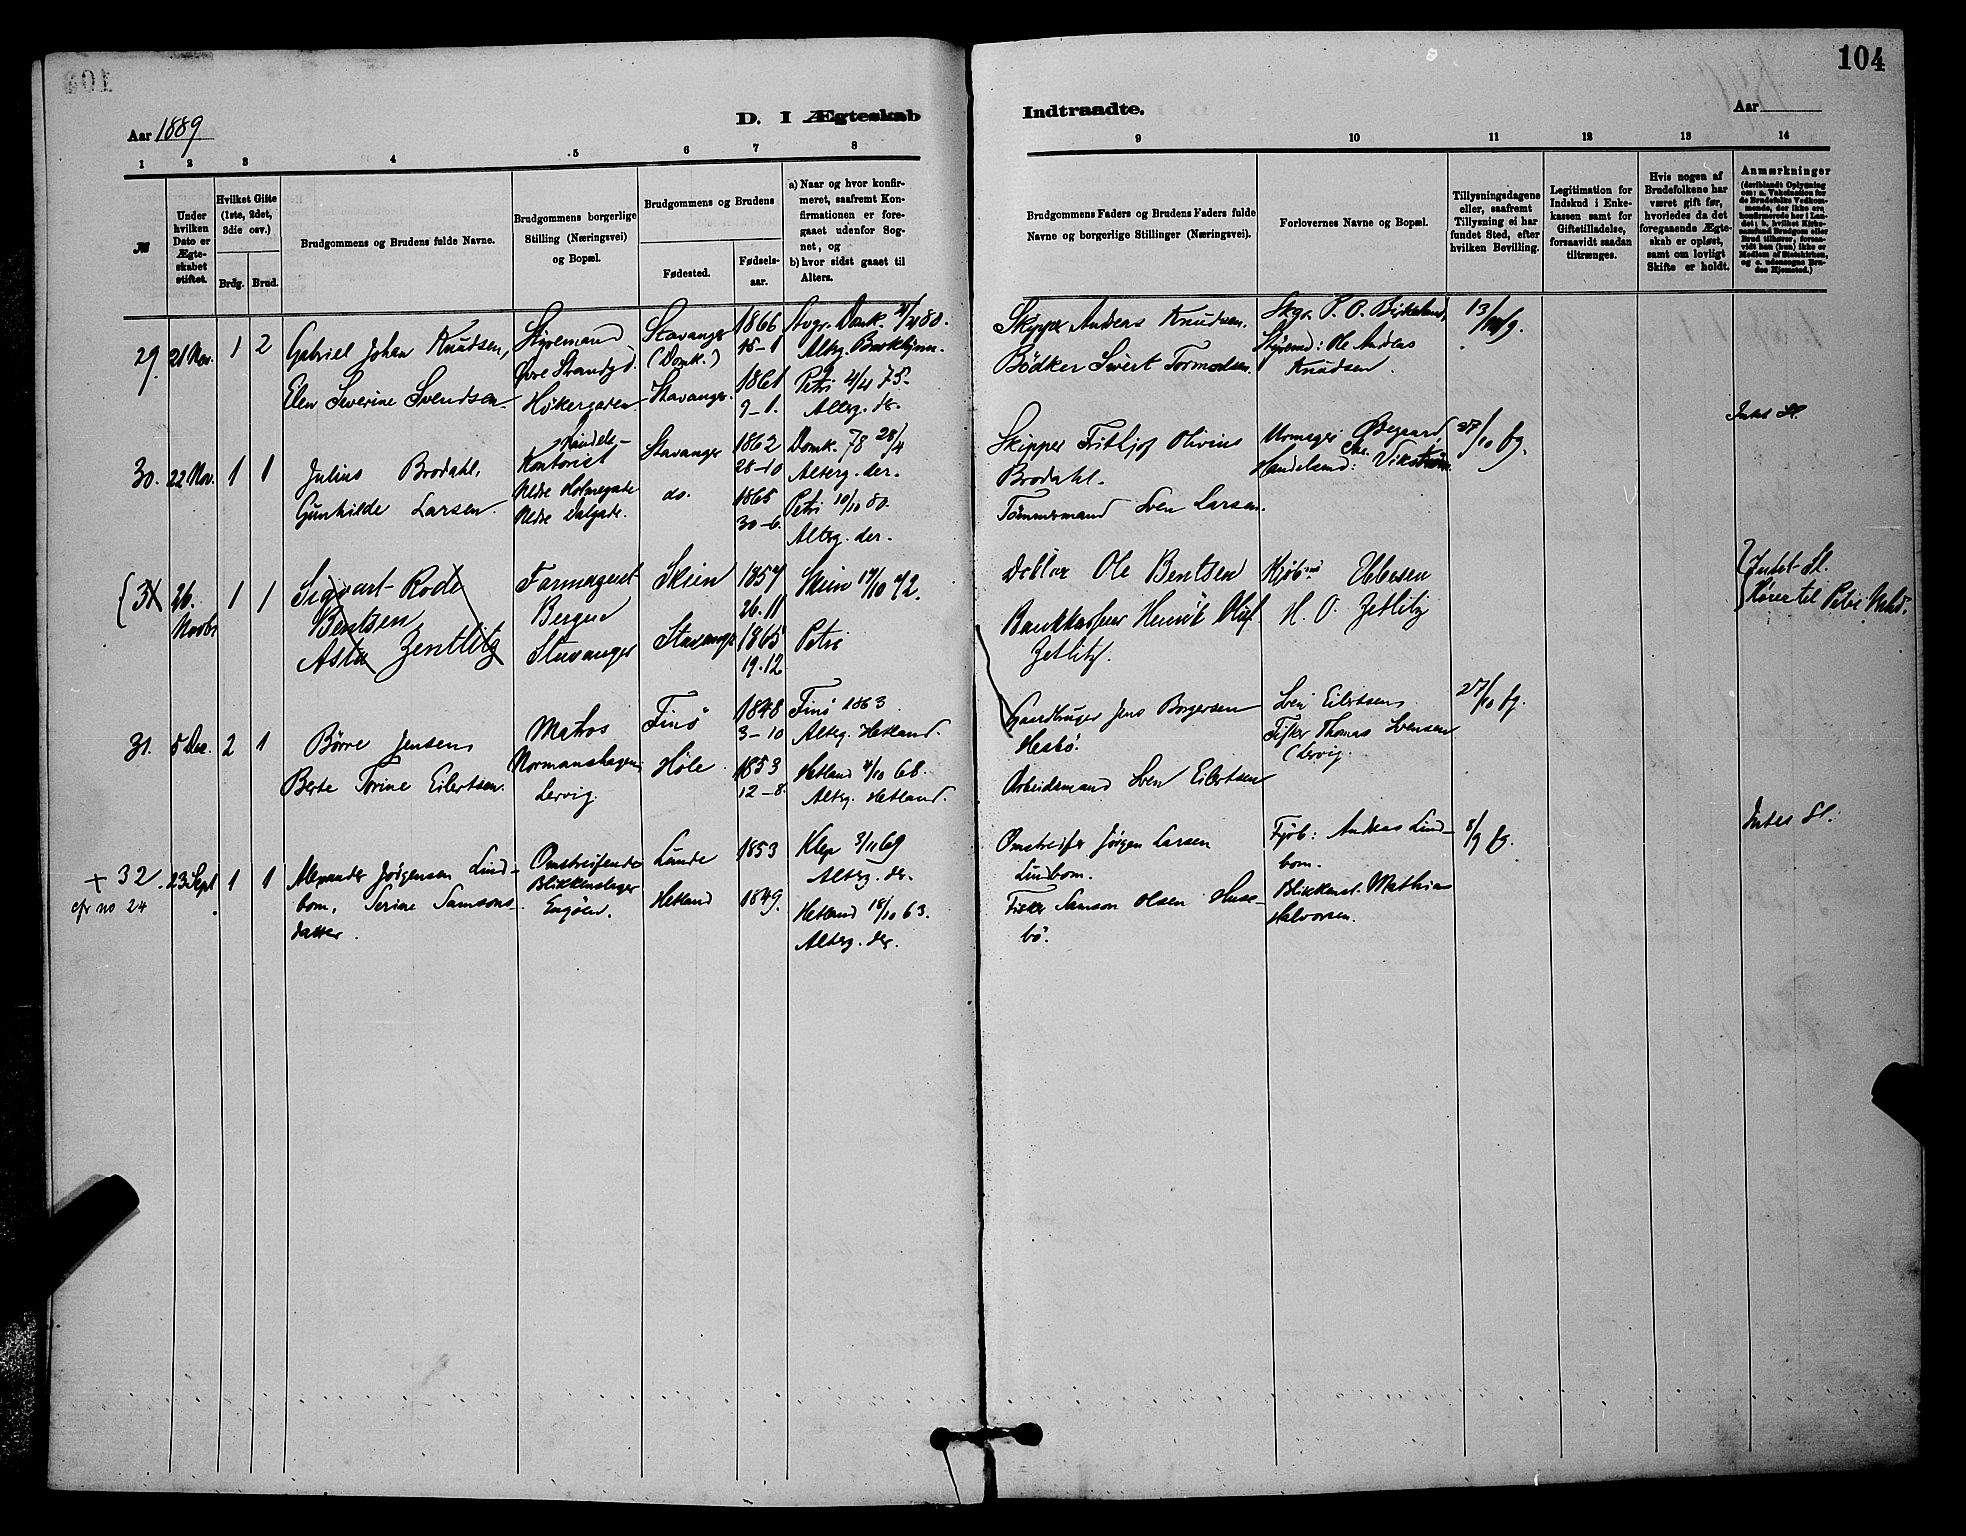 104
Aar 1889
D. I Ægteskab
Indtraadte.
Aar
1 2 3 4 5 6 7 8
9 10 11 12 13 14
№
Under hvilken Dato er Ægteskabet stiftet.
Hvilket Gifte (1ste, 2det, 3die osv.)
Brdg. Brud.
Brudgommens og Brudens fulde Navne.
Brudgommens borgerlige Stilling (Næringsvei) og Bopæl.
Brudgommens og Brudens
Fødested.
Fødselsaar.
a) Naar og hvor konfirmeret, saafremt Konfirmationen er foregaaet udenfor Sognet, og
b) hvor sidst gaaet til Alters.
Brudgommens Faders og Brudens Faders fulde Navne og borgerlige Stillinger (Næringsvei).
Forlovernes Navne og Bopæl.
Tillysningsdagene eller, saafremt Tillysning ei har fundet Sted, efter hvilken Bevilling.
Legitimation for Indskud i Enkekassen samt for Giftetilladelse, forsaavidt saadan tiltrænges.
Hvis nogen af Brudefolkene har været gift før, hvorledes da det foregaaende Ægteskab er opløst, samt om lovligt Skifte er holdt.
Anmærkninger
29. 21 Nov. 1 2
Gabriel Johan Knudsen,
Elen Severine Svendsen.
Styrmand
Øvre Strandgd.
Høkergaden.
Stavanger
(Domk.)
Stavanger.
1866
15-1
1861
9-1.
Altg. Brooklynn.
Petri 4/4 75.
Altrg. dr.
Skipper Andreas Knudsen.
Bödker Sivert Tormodsen.
P. O. Birkeland,
Styrmd: Ole Andreas
Knudsen.
30. 22 Nov. 1 1
Julius Brodahl,
Gunhilde Larsen.
Handels-
Kontorist
Nedre Holmegade
Nedre Dalgade.
Stavanger
do.
1862
28-10
1865
30-6.
Domk. 78 28/4
Altrg. der.
Petri 10/10 80.
Altrg. der.
Skipper Fritljof Olivius
Brodahl.
Tømmermand Sven Larsen.
Urmager Øegaard,
Handelsmd: Chr. Vikstrøm.
27/10 fg.
Intet Sl.
31 26. Novbr 1 1
Sigvart Rode
Bentsen
Asta Zentlitz
Farmaceut
Bergen
Stavanger
Skien
Stavanger
1857
26.11
1865
19.12
Skien 14/10 72.
Petri
Doktor Ole Bentsen
Bankkasserer Henrik Oluf
Zetlitz.
Kjøbmd Ebbesen
H. O. Zetlitz
Intet Sl.
Hører til Petri Mhd.
31. 5 Dec. 2 1
Børre Jensen
Berte Torine Eilertsen.
Matros
Normanshagen
Lervig.
Finö
Høle.
1848
3-10
1853
12-8.
Finö 1863.
Altrg. Hetland.
Hetland 4/10 68.
Altrg. Hetland.
Gaardbruger Jens Borgersen
Hesbö.
Arbeidsmand Sven Eilertsen
Sven Eilertsen,
Fisker Thomas Svensen
(Lervig.
27/10 fg.
+ 32. 23 Sept. 1 1
cfr no 24
Alexander Jørgensen Lind-
bom, Serine Samsons-
datter.
Omstreifende
Blikkenslager
Engöen.
Lunde
Hetland
1853
1849.
Klep 3/11 69
Altrg. dr.
Hetland 18/10 63.
Altrg. der.
Omstreifer Jørgen Larsen
Lindbom.
Fisker Samson Olsen Huse-
bö.
Fjøb: Andreas Lind-
bom.
Blikkensl. Mathias
Halvorsen.
8/9 fg.
Intet Sl.